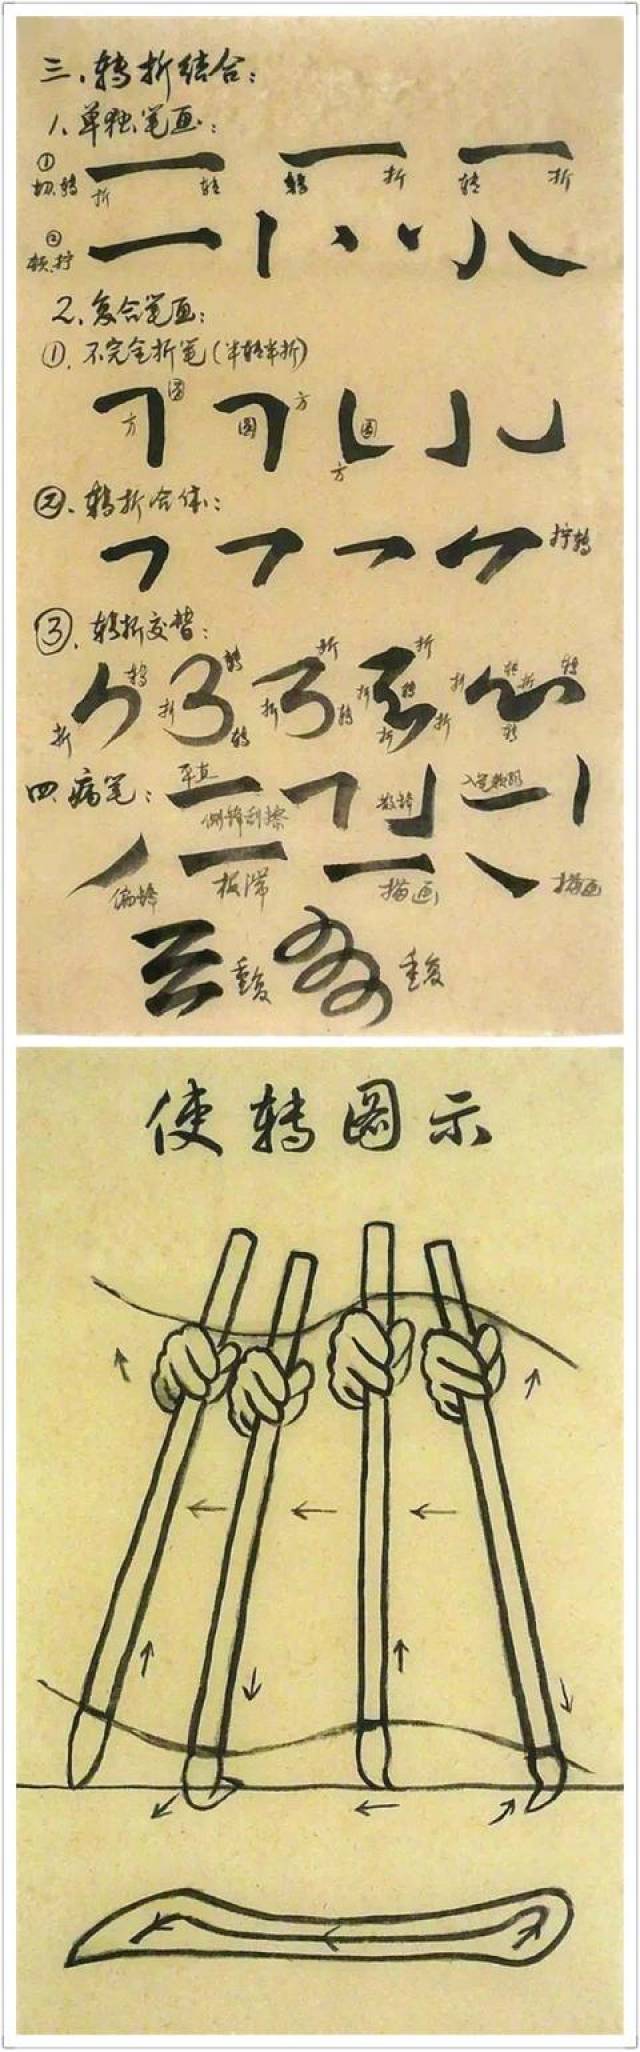 三、转折结合：
1、单独笔画：
① 切.转 折 转 转 折 转 折
②
2、复合笔画：
①、不完全折笔(半转半折)
方 圆 圆 方 圆 方
②、转折合体：
拧转
③、转折交替：
折 转 折 转 转 折 折 转 折 折 转 折 折 折 转 折 转 转
四、病笔：平直 侧锋刮擦 散锋
偏锋 板滞 描画 描画
重复 重复
使转图示